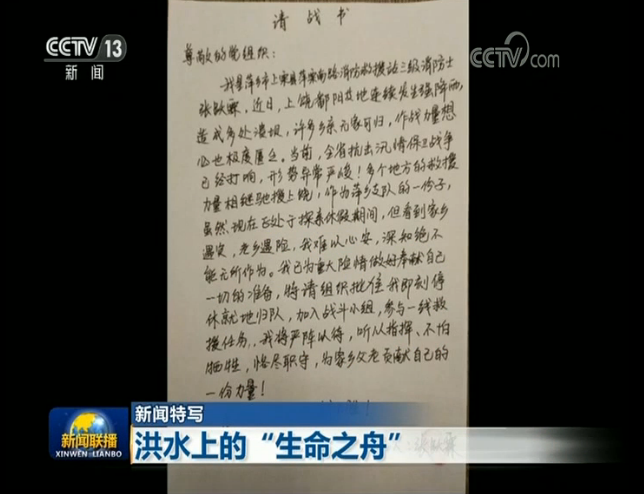 CCTV 13
新闻
CCTV.com
请战书
尊敬的党组织：
我是萍乡市上栗县萍栗南路消防救援站三级消防士
张耿霖，近日，上饶鄱阳及地连续发生强降雨，
造成多处溃坝，许多乡亲无家可归，作战力量想
必也极度匮乏。当前，全省抗击汛情保卫战争
已经打响，形势异常严峻！多个地方的救援
力量相继驰援上饶，作为萍乡支队的一份子，
虽然现在正处于探亲休假期间，但看到家乡
遇灾，老乡遇险，我难以心安，深知绝不
能无所作为。我已为重大险情做好奉献自己
一切的准备，特请组织批准我即刻停
休就地归队，加入战斗小组，参与一线救
援任务，我将严阵以待，听从指挥、不怕
牺牲，恪尽职守，为家乡父老贡献自己的
一份力量！
新闻联播
XINWEN LIANBO
新闻特写
洪水上的“生命之舟”